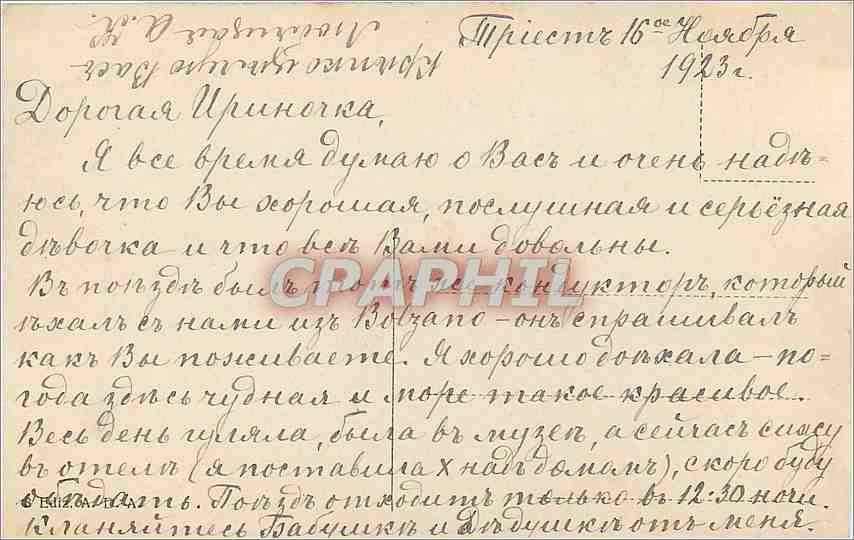 Тріестъ 16ое Ноября
1923 г.
Дорогая Ириночка,
Я все время думаю о Васъ и очень надѣ=
юсь, что Вы хорошая, послушная и серьёзная
дѣвочка и что всѣ Вами довольны.
Въ поѣздѣ былъ тотъ же кондукторъ, который
ѣхалъ съ нами изъ Bolzano – онъ спрашивалъ
какъ Вы поживаете. Я хорошо доѣхала – по=
года здѣсь чудная и море такое красивое.
Весь день гуляла, была въ музеѣ, а сейчасъ сижу
въ отелѣ (я поставила X надъ домомъ), скоро буду
обѣдать. Поѣздъ отходитъ только въ 12:30 ночи.
Кланяйтесь Бабушкѣ и Дѣдушкѣ отъ меня.
Крѣпко цѣлую Васъ
А. К.
CPARHIL